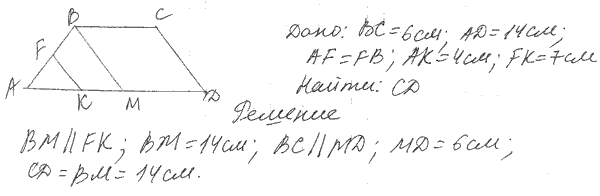 B C
F
A K M D
Дано: BC=6см; AD=14см;
AF=FB; AK=4см; FK=7см
Найти: CD
Решение
BM||FK; BM=14см; BC||MD; MD=6см;
CD=BM=14см.